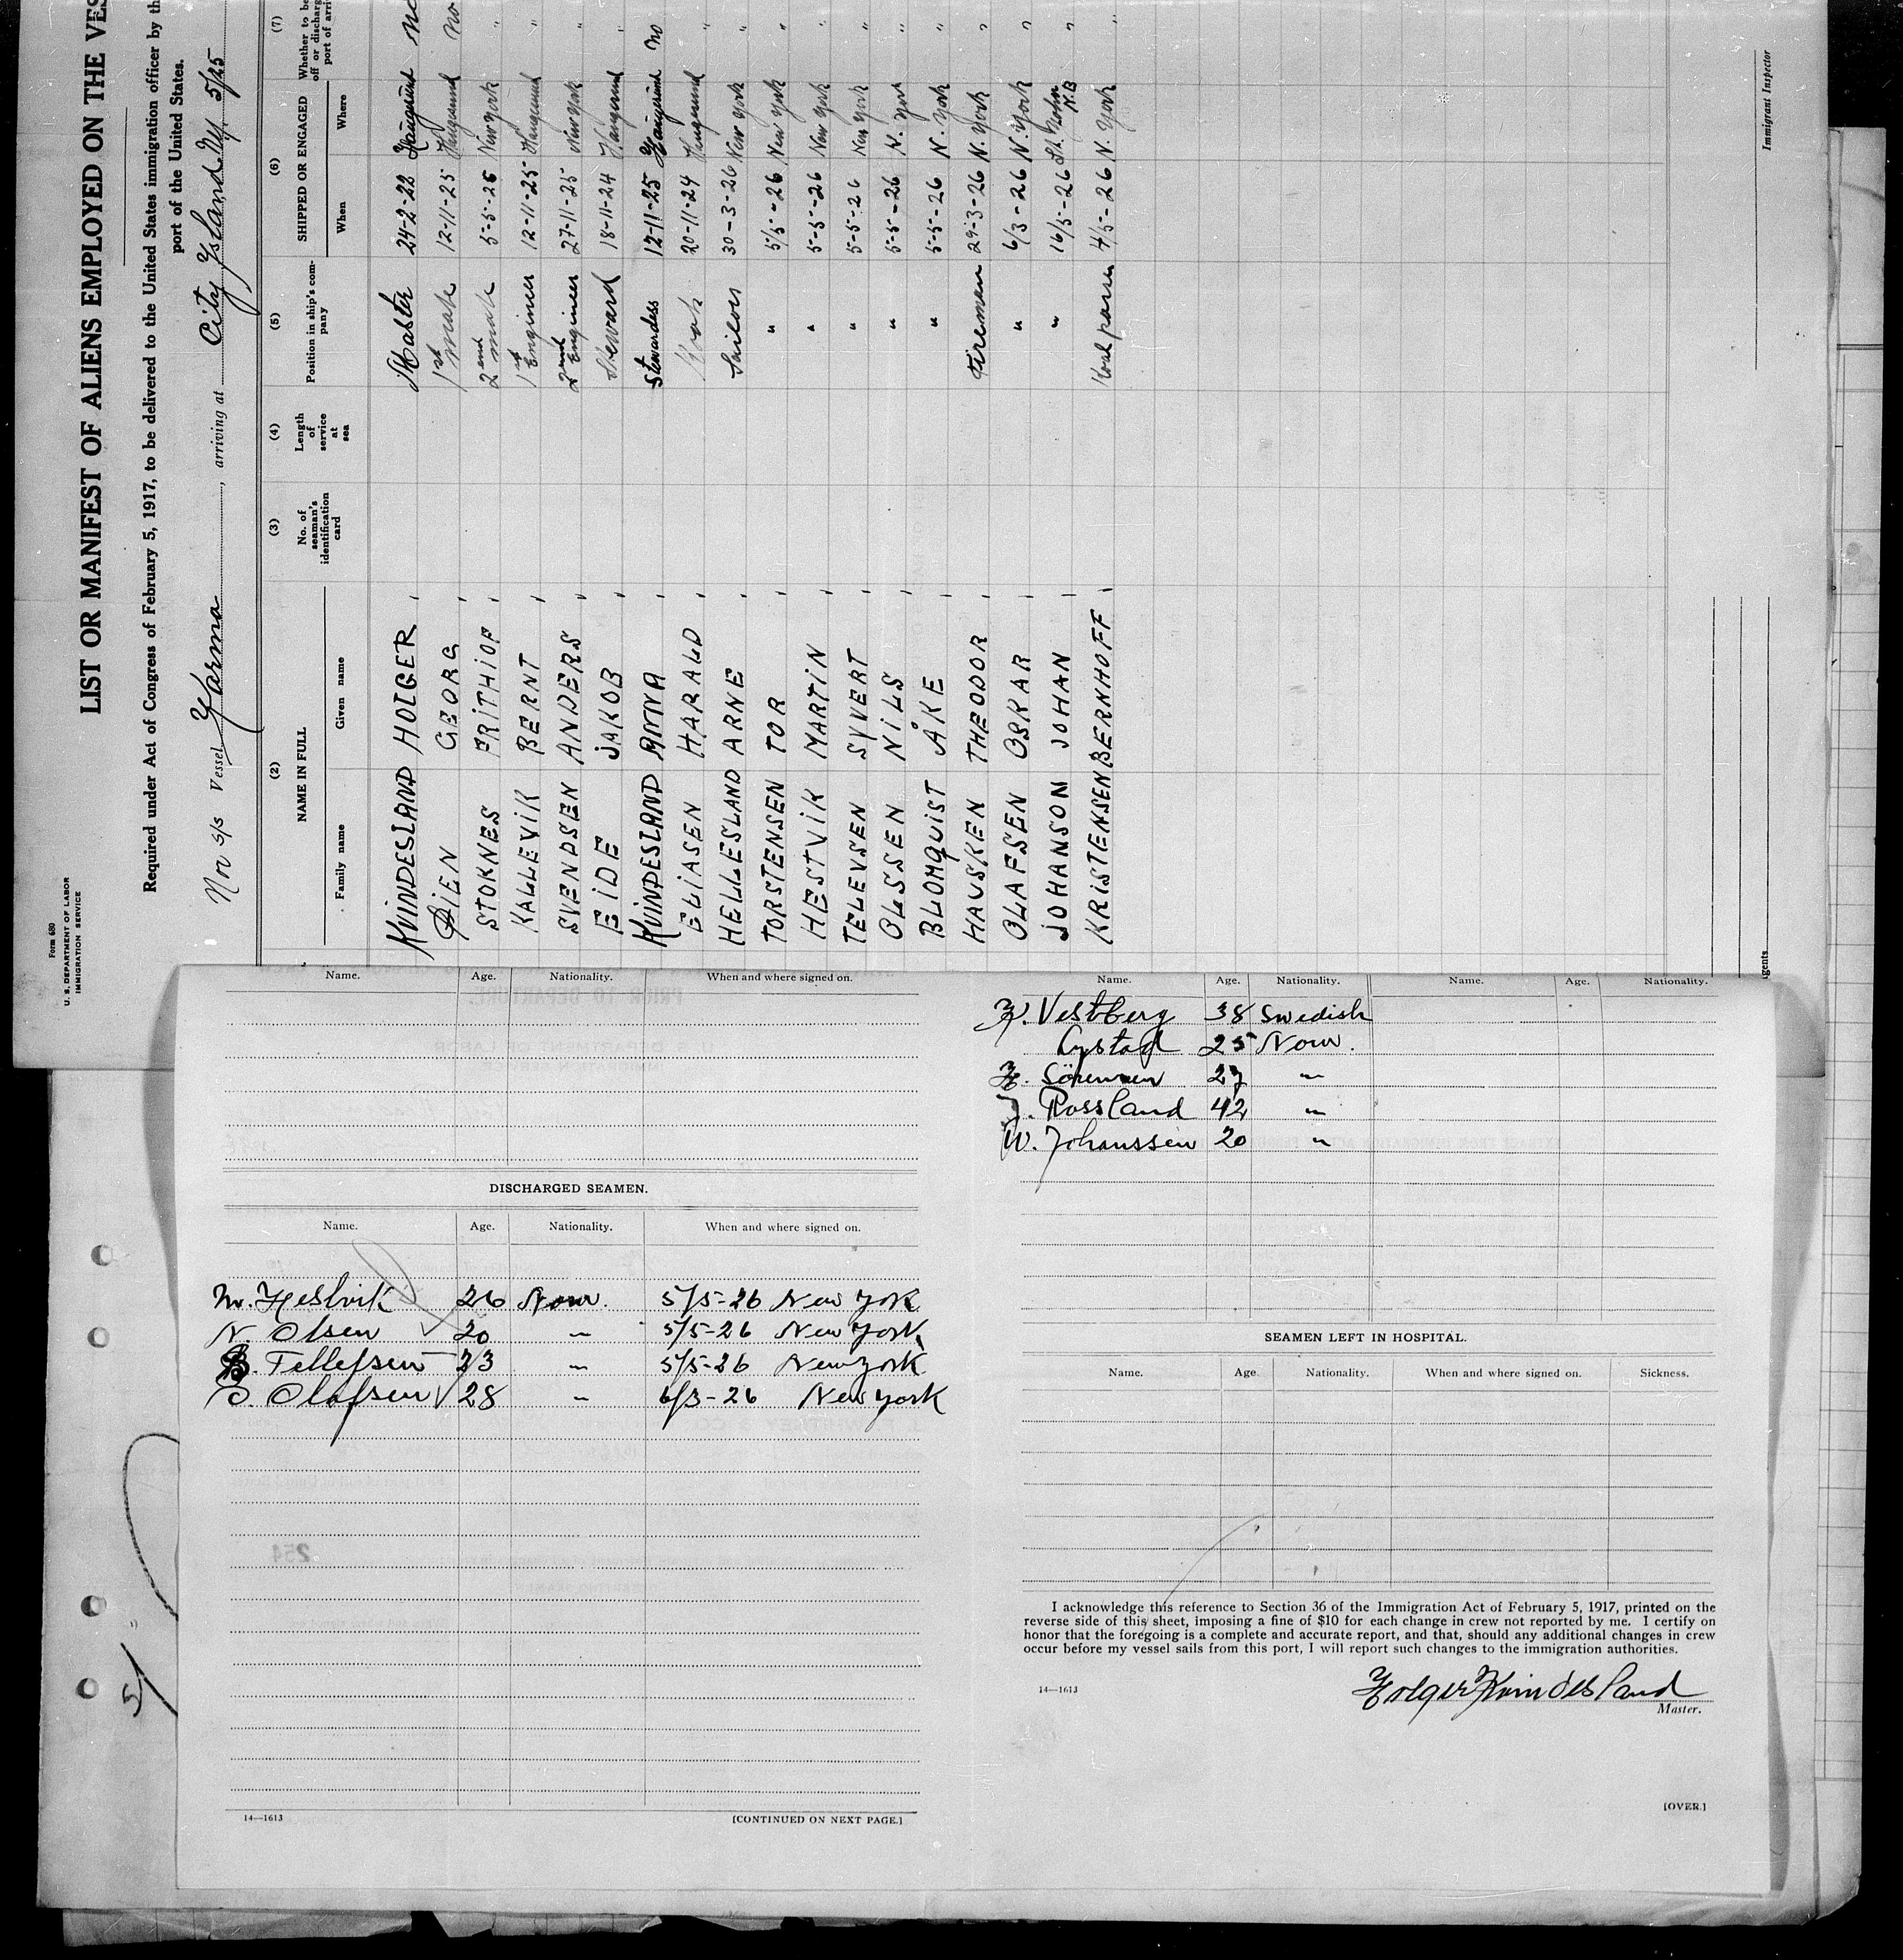 Form 680
U. S. DEPARTMENT OF LABOR
IMMIGRATION SERVICE
LIST OR MANIFEST OF ALIENS EMPLOYED ON THE VES
Required under Act of Congress of February 5, 1917, to be delivered to the United States immigration officer by th
port of the United States.
Nor s/s Vessel Karmo, arriving at City Island N.Y. 5/25
(2) (3) (4) (5) (6) (7)
NAME IN FULL No. of seaman's identification card Length of service at sea Position in ship's company SHIPPED OR ENGAGED Whether to be off or discharg port of arri
Family name Given name When Where
KVINDESLAND HOLGER Master 24-2-22 Haugesund no
ØIEN GEORG 1st mate 12-11-25 Haugesund no
STOKNES FRITHIOF 2end mate 5-5-26 New York "
KALLEVIK BERNT 1st Engineer 12-11-25 Haugesund "
SVENDSEN ANDERS 2end Engineer 27-11-25 New York "
EIDE JAKOB Steward 18-11-24 Haugesund "
KVINDESLAND ANNA Stewardess 12-11-25 Haugesund no
ELIASEN HARALD Kook 20-11-24 Haugesund "
HELLESLAND ARNE Sailor 30-3-26 New York "
TORSTENSEN TOR " 5/5-26 New York "
HESTVIK MARTIN " 5-5-26 New York "
TELEVSEN SYVERT " 5-5-26 New York "
OLSSEN NILS " 5-5-26 N. York "
BLOMQUIST ÅKE " 5-5-26 N. York "
HAUSKEN THEODOR Fireman 29-3-26 N. York "
OLAFSEN OSKAR " 6/3-26 N. York "
JOHANSON JOHAN " 16/5-26 St. John N.B "
KRISTENSEN BERNHOFF 4/5-26 N. York "
Immigrant Inspector
gents
Name. Age. Nationality. When and where signed on.
DISCHARGED SEAMEN.
Name. Age. Nationality. When and where signed on.
M. Hestvik 26 Norw. 5/5-26 New York
N. Olsen 20 " 5/5-26 New York
Tellefsen 23 " 5/5-26 New York
O. Olafsen 28 " 6/3-26 New York
14—1613
[CONTINUED ON NEXT PAGE.]
Name. Age. Nationality. Name. Age. Nationality.
Vestberg 38 Swedish
25 Norw.
H. Sörensen 27 "
J. Rossland 42 "
W. Johanssen 20 "
SEAMEN LEFT IN HOSPITAL.
Name. Age. Nationality. When and where signed on. Sickness.
I acknowledge this reference to Section 36 of the Immigration Act of February 5, 1917, printed on the
reverse side of this sheet, imposing a fine of $10 for each change in crew not reported by me. I certify on
honor that the foregoing is a complete and accurate report, and that, should any additional changes in crew
occur before my vessel sails from this port, I will report such changes to the immigration authorities.
14—1613
Holger Kvindesland
Master.
[OVER.]